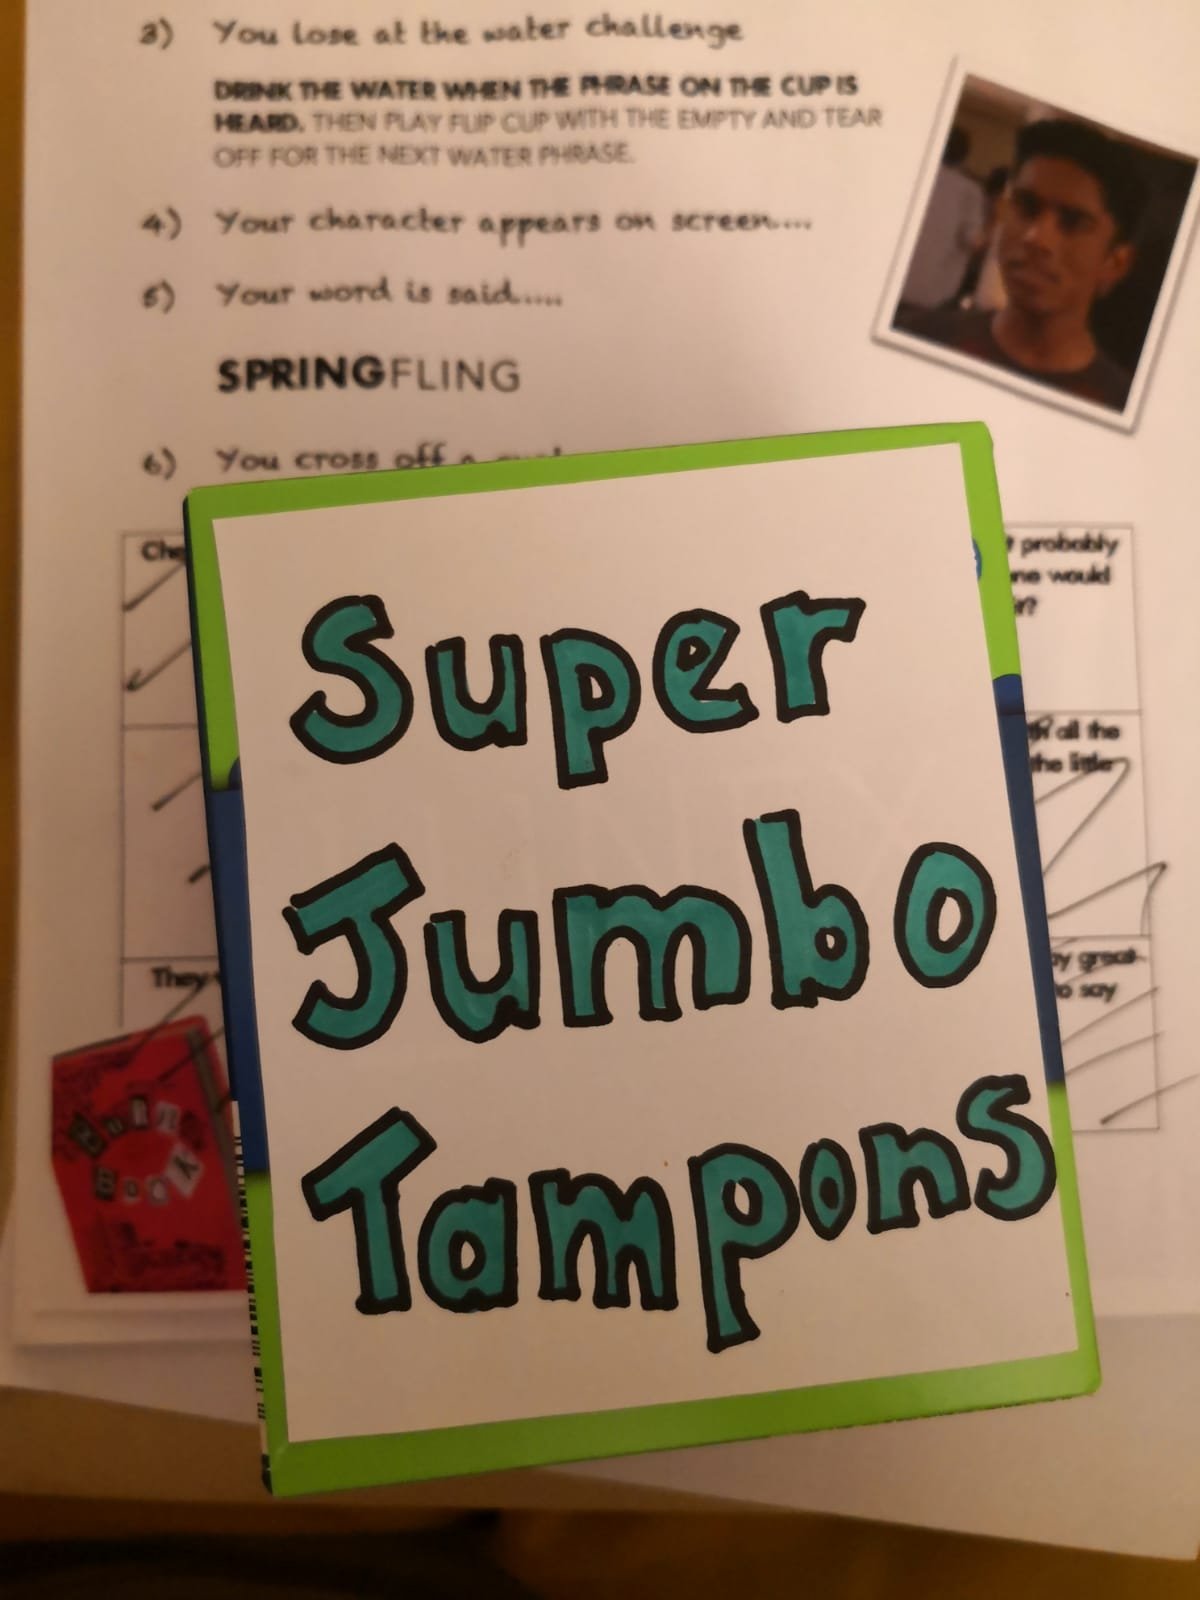 3) You lose at the water challenge
DRINK THE WATER WHEN THE PHRASE ON THE CUP IS
HEARD. THEN PLAY FLIP CUP WITH THE EMPTY AND TEAR
OFF FOR THE NEXT WATER PHRASE.
4) Your character appears on screen....
5) Your word is said.....
SPRINGFLING
6) You cross off a
probably
would
all the
the little
They
great
to say
Super
Jumbo
Tampons
BURN
BOOK